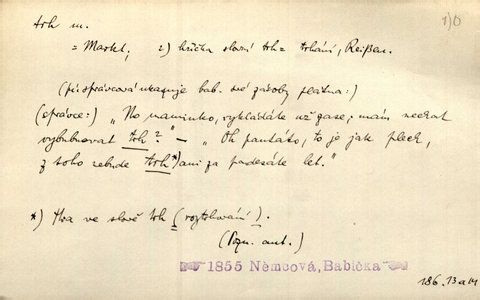 trh m.
1)0
= Markt; 2) hříčka slovní trh = trhání, Reißen.
(paní správcová ukazuje bab. své zásoby plátna:)
(správce:) „No maminko, vykládáte už zase; mám nechat
vybubnovat trh?" – „Oh pantáto, to je jak plech,
z toho nebude trh*) ani za padesáte let."
*) Hra ve slově trh (roztrhování).
(Pozn. aut.)
1855 Němcová, Babička
186. 13 a 14